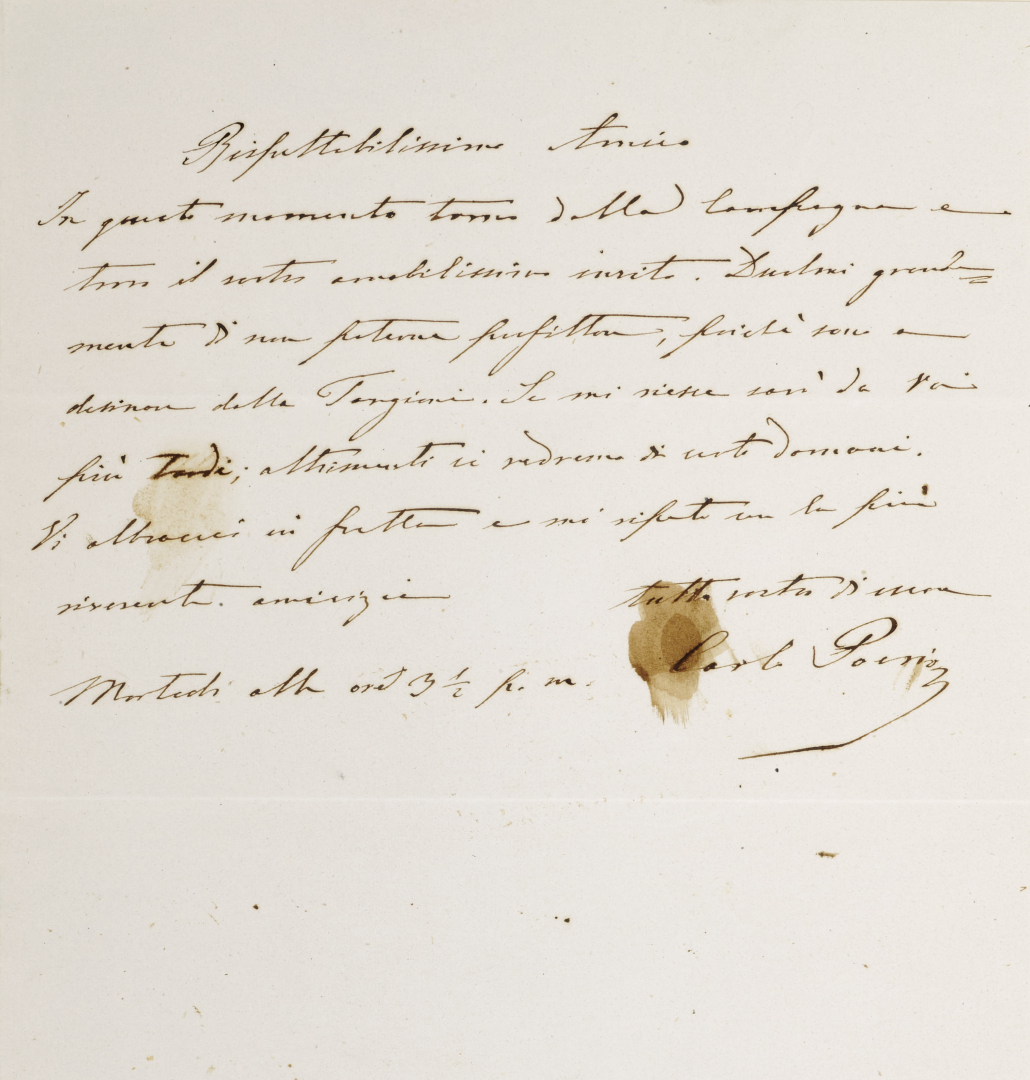 Rispettabilissimo Amico
In questo momento torno dalla Campagna e
trovo il vostro amabilissimo invito. Duolmi grande=
mente di non poterne profittare, poichè sono a
desinare dalla Targioni. Se mi riesce sarò da Voi
più tardi; altrimenti ci vedremo di certo domani.
Vi abbraccio in fretta e mi ripeto con la più
riverente amicizia tutto vostro di cuore
Martedì alle ore 3 ½ p. m. Carlo Poerio